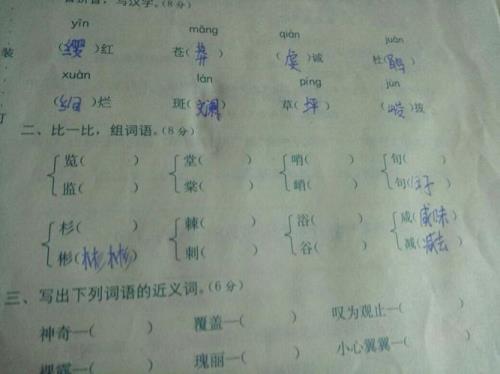 看拼音，写汉字。(8分)
yīn mǎng qián juān
(缨)红 苍(莽)(虔)诚 杜(鹃)
xuàn lán píng jùn
(绚)烂 斑(斓) 草(坪)(峻)拔
二、比一比，组词语。(8分)
览( ) 堂( ) 哨( ) 旬( )
监( ) 棠( ) 峭( ) 句(句子)
杉( ) 棘( ) 浴( ) 咸(咸味)
彬(彬彬) 刺( ) 谷( ) 减(减去)
三、写出下列词语的近义词。(6分)
神奇—( ) 覆盖—( ) 叹为观止—( )
裸露—( ) 瑰丽—( ) 小心翼翼—( )
装
订